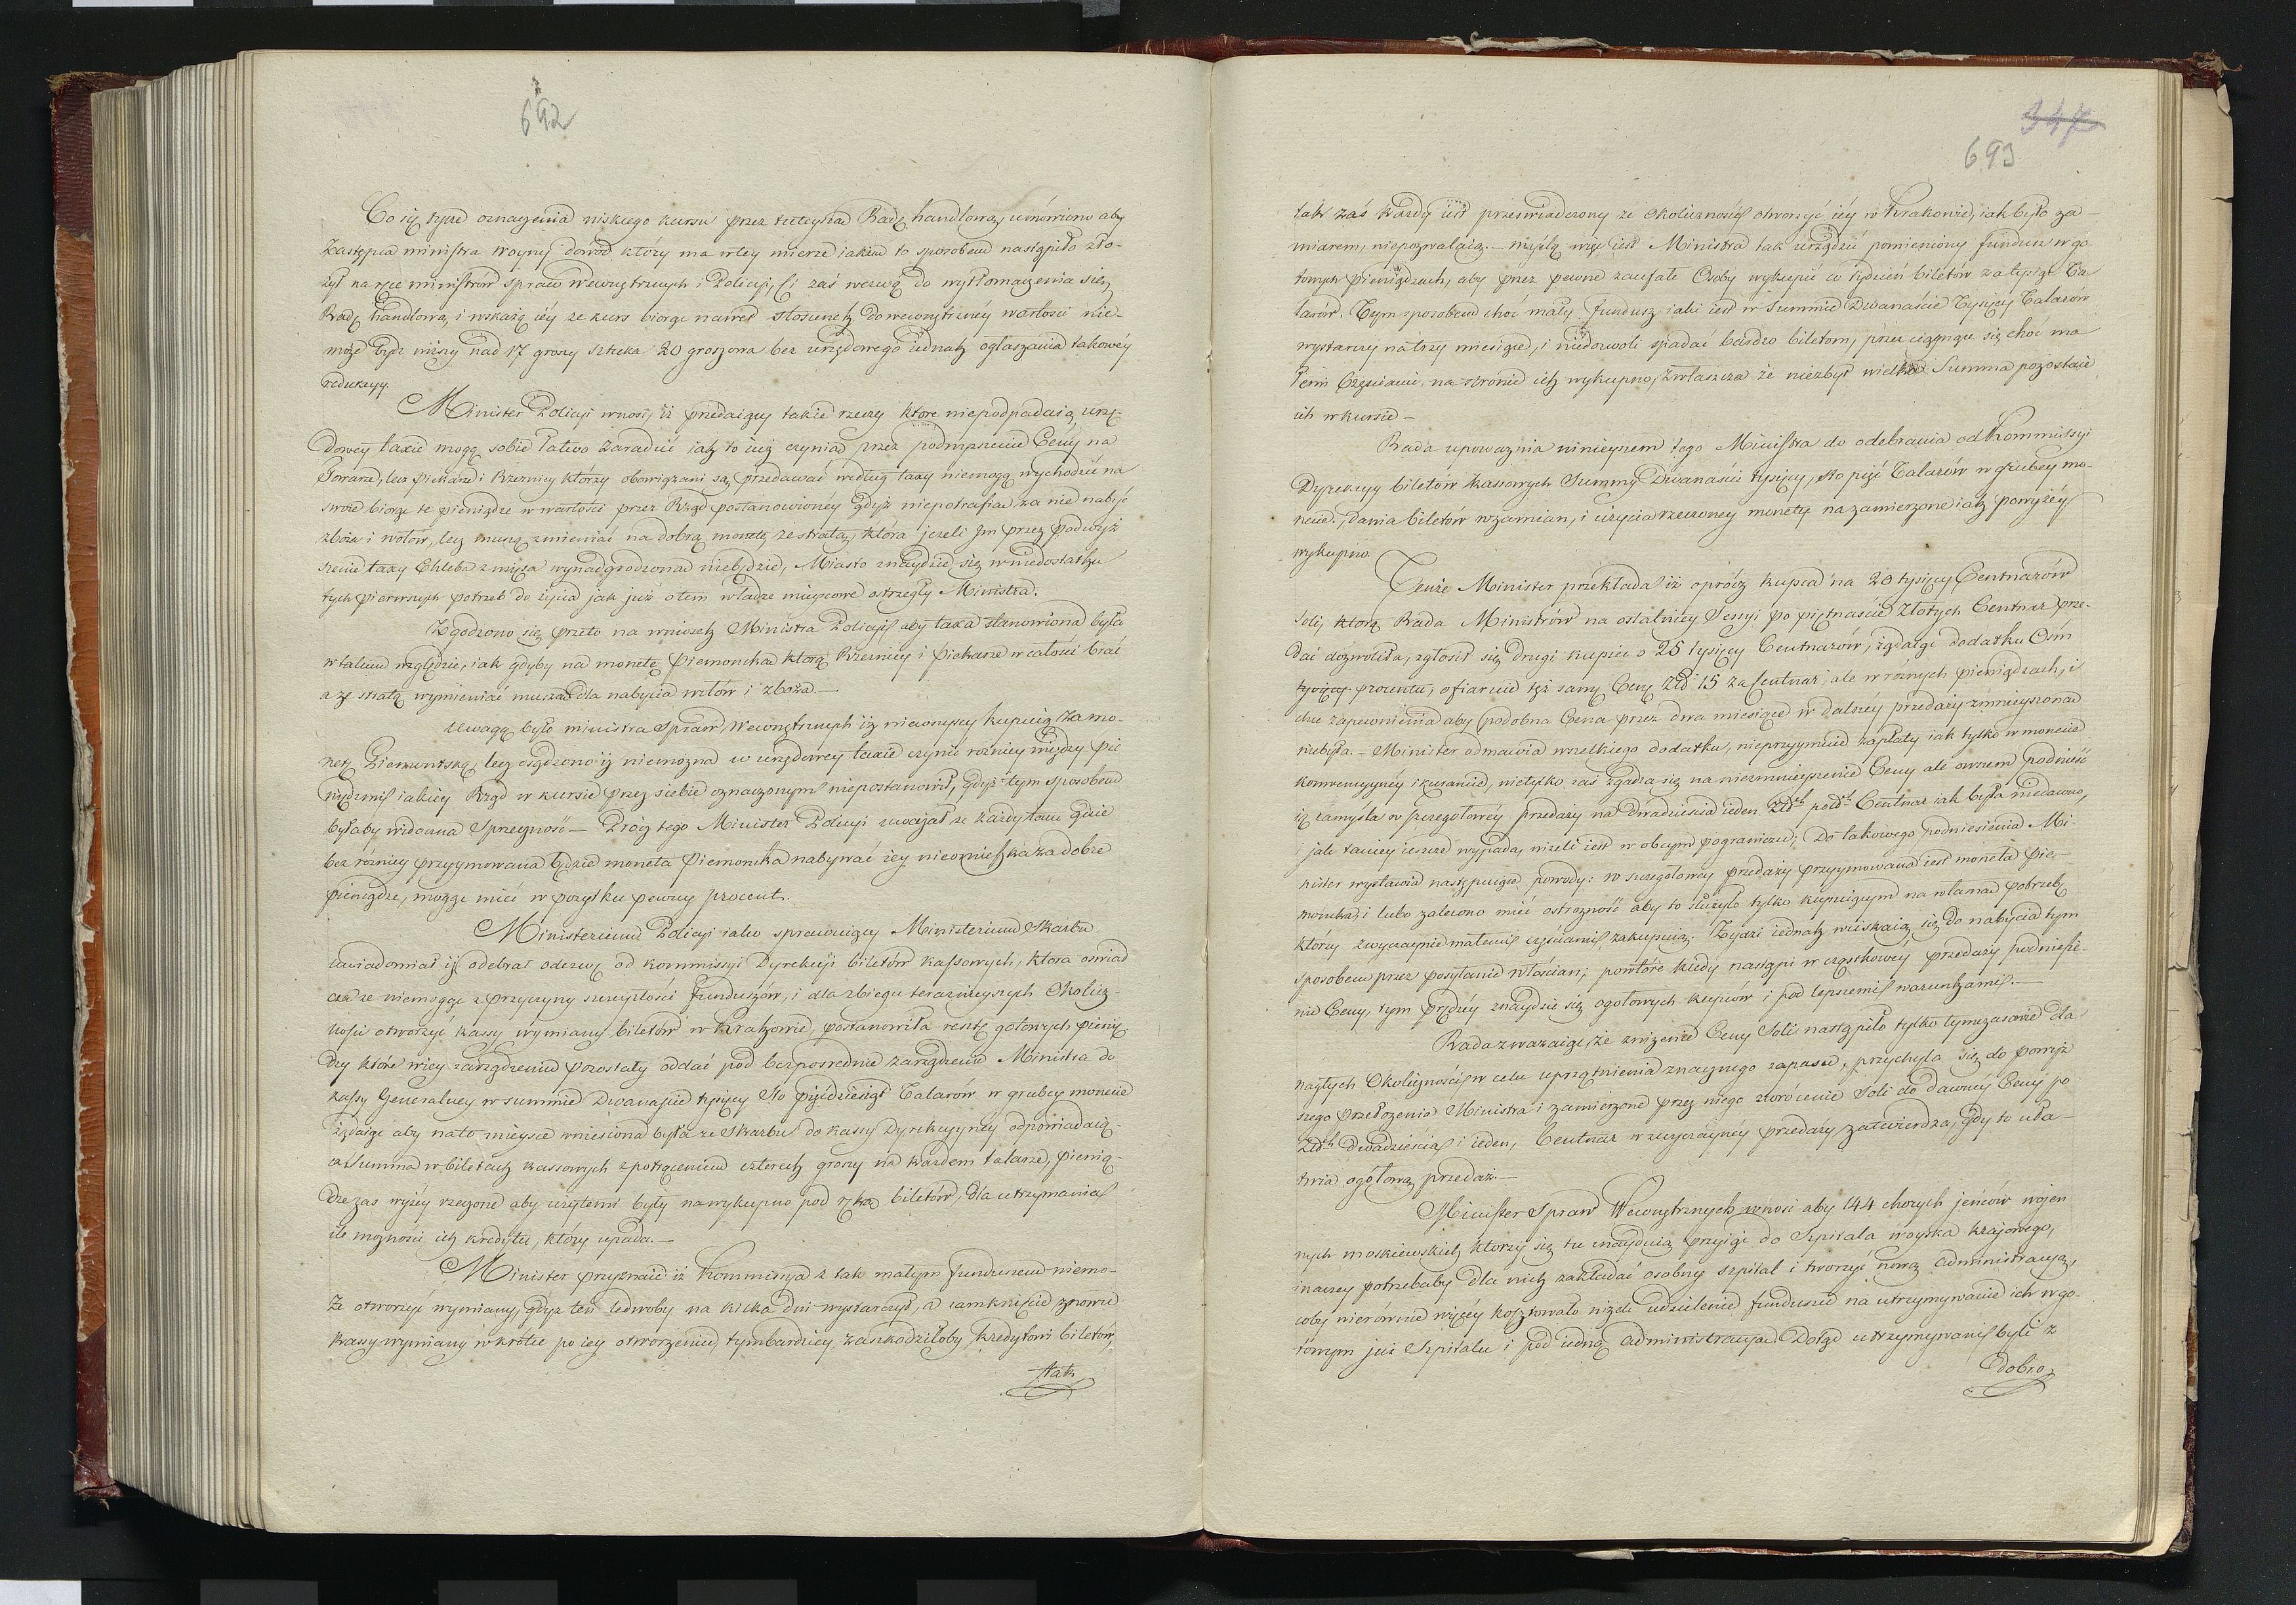 692
Co się tycze oznaczenia niskiego kursu przez tuteyszą Radę handlową, umówiono aby
Zastępca ministra Woyny dowód który ma w tey mierze iakim to sposobem nastąpiło zło-
żył na ręce ministrów Spraw Wewnętrznych i Policyi, Ci zaś wezwą do wytłomaczenia się
Radę handlową i wskażą iéy że kurs biorąc nawet stosunek do wewnętrznéy wartości nie-
może bydź niższy nad 17 groszy sztuka 20 groszowa bez urzędowego iednak ogłaszania takowéy
redukcyi.
Minister Policyi wnosi, iż przedaiący takie rzeczy które niepodpadaią urzę-
dowéy taxie mogą sobie łatwo zaradzić iak to iuż czynią przez podwyższenie Ceny na
Towarze, lecz piekarze i Rzeźnicy którzy obowiązani są przedawać według taxy niemogą wychodzić na
swoie biorąc te pieniądze w wartości przez Rząd postanowionéy gdyż niepotrafią za nie nabyć
zboża i wołów, lecz muszą zmieniać na dobrą monetę ze stratą, która jeżeli Im przez podwyż
szenie taxy Chleba z mięsa wynadgrodzona niebędzie, Miasto znaydzie się w niedostatku
tych pierwszych potrzeb do życia jak już o tem władze mieyscowe ostrzegły Ministra.
Zgodzono się przeto na wniosek Ministra Policyi aby taxa stanowiona była
w takim względzie, iak gdyby na monetę Piemoncką którą Rzeźnicy i Piekarze w całości brać
a ze stratą wymieniać muszą dla nabycia wołów i zboża.—
Uwagą było ministra Spraw Wewnętrznych iż niewszyscy kupuią za mo-
netę Piemontską, lecz osądzono iż niemożna w urzędowéy taxie czynić różnicy między pie
niędzmi iakiéy Rząd w kursie przez siebie oznaczonym niepostanowił, gdyż tym sposobem
byłaby widoczna sprzeczność — Prócz tego Minister Policyi uważał że każdy tam gdzie
bez różnicy przyymowana będzie moneta Piemoncka nabywać iéy nieomieszka za dobre
pieniądze, mogąc mieć w pozysku pewny procent.
Ministerium Policyi iako sprawuiący Ministerium Skarbu
uwiadomiał iż odebrał odezwę od kommissyi Dyrekcyi biletów kassowych, która oświad
cza że niemogąc z przyczyny szczupłości funduszów, i dla zbiegu teraźnieyszych Okolicz-
ności otworzyć kassy wymiany biletów w Krakowie, postanowiła resztę gotowych pienię
dzy które w iéy zarządzeniu pozostały oddać pod bezpośrednie zarządzenie Ministra do
kassy Generalnéy w summie Dwanaście tysięcy Sto pięćdziesiąt Talarów w grubey monecie
żądaiąc aby na to mieysce wniesiona była ze Skarbu do kassy Dyrekcyynéy odpowiadaią-
ca Summa w biletach kassowych z potrąceniem czterech groszy na każdem talarze, pienią-
dze zaś wyżéy rzeczone aby użytemi były na wykupno pod ręką biletów, dla utrzymania
ile możności ich kredytu, który upada.—
Minister przyznaie iż Kommissya z tak małym funduszem niemo-
że otworzyć wymiany, gdyż ten ledwoby na kilka dni wystarczył, a zamknięcie znowu
kassy wymiany wkrótce po iéy otworzeniu tymbardziéy zaszkodziłoby kredytowi biletów,
tak
347
693
tak zaś każdy iest przeświadczony że okoliczności otworzyć iéy w Krakowie, iak było za-
miarem, niepozwalaią.— myślą więc iest Ministra tak urządzić pomieniony fundusz w go
towych pieniądzach, aby przez pewne zaufałe Osoby wykupić co tydzień biletów za tysiąc Ta
larów. Tym sposobem choć mały fundusz iaki iest w Summie Dwanaście Tysięcy Talarów
wystarczy na trzy miesiące, i niedozwoli spadać bardzo biletom, przeciągnąc się choć ma
łemi Częściami na stronie ich wykupno, zwłaszcza że niezbyt wielka Summa pozostaie
ich w kursie —
Rada upoważnia ninieyszem tego Ministra do odebrania od Kommissyi
Dyrekcyi biletów kassowych Summy Dwanaście tysięcy, sto pięć Talarów w grubey mo-
necie, dania biletów w zamian, i użycia rzeczonéy monety na zamierzone iak powyżéy
wykupno.
Tenże Minister przekłada iż oprócz kupca na 20 tysięcy Centnarów
Soli, którą Rada Ministrów na ostatniéy Sessyi po piętnaście Złotych Centnar prze-
dać dozwoliła, zgłosił się drugi kupiec o 25 tysięcy Centnarów, żądaiąc dodatku Ośm
tysięcy procentu, ofiaruie tęż samą Cenę Złt 15 za Centnar, ale w różnych pieniądzach, i
chce zapewnienia aby podobna Cena przez dwa miesiące w dalszéy przedaży zmnieyszona
niebyła.— Minister odmawia wszelkiego dodatku, nieprzyymuie zapłaty iak tylko w monecie
konwencyynéy i kursanie, nietylko zaś zgadza się na niezmnieyszenie Ceny ale owszem podnieść
ią zamyśla w szczegołowéy przedaży na dwadzieścia ieden Złt. pol. Centnar iak była niedawno,
i jak taniey ieszcze wypada, niżeli iest w obcym pograniczu; Do takowego podniesienia Mi-
nister wystawia następuiące powody: w szczegołowey przedaży przyymowana iest moneta Pie-
moncka, i lubo zalecono mieć ostrożność aby to służyło tylko kupuiącym na własną potrzebę
którzy zwyczaynie małemi częściami zakupuią. Żydzi iednak wciskaią się do nabycia tym
sposobem przez posyłanie włościan; powtóre kiedy nastąpi w cząstkowéy przedaży podniesie-
nie Ceny, tym prędzéy znaydzie się ogołowych kupców i pod lepszemi warunkami.—
Rada zważaiąc, że zniżenie Ceny Soli nastąpiło tylko tymczasowie dla
nagłych Okoliczności w celu uprzątnienia znacznego zapasu, przychyla się do powyż
szego przełożenia Ministra i zamierzone przez niego zwrócenie Soli do dawnéy Ceny po
Złt. Dwadzieścia i ieden, Centnar w zwyczaynéy przedaży zatwierdza, gdy to uła-
twia ogółową przedaż.—
Minister Spraw Wewnętrznych wnosi aby 144 chorych jeńców wojen
nych moskiewskich którzy się tu znayduią przyiąć do Szpitala woyska krajowego,
inaczey potrzebaby dla nich zakładać osobny szpital i tworzyć nową administracyą,
coby nierównie więcéy kosztowało niżeli udzielenie funduszu na utrzymywanie ich w go
towym już Szpitalu i pod iedną administracyą. Dotąd utrzymywani byli z
dobro